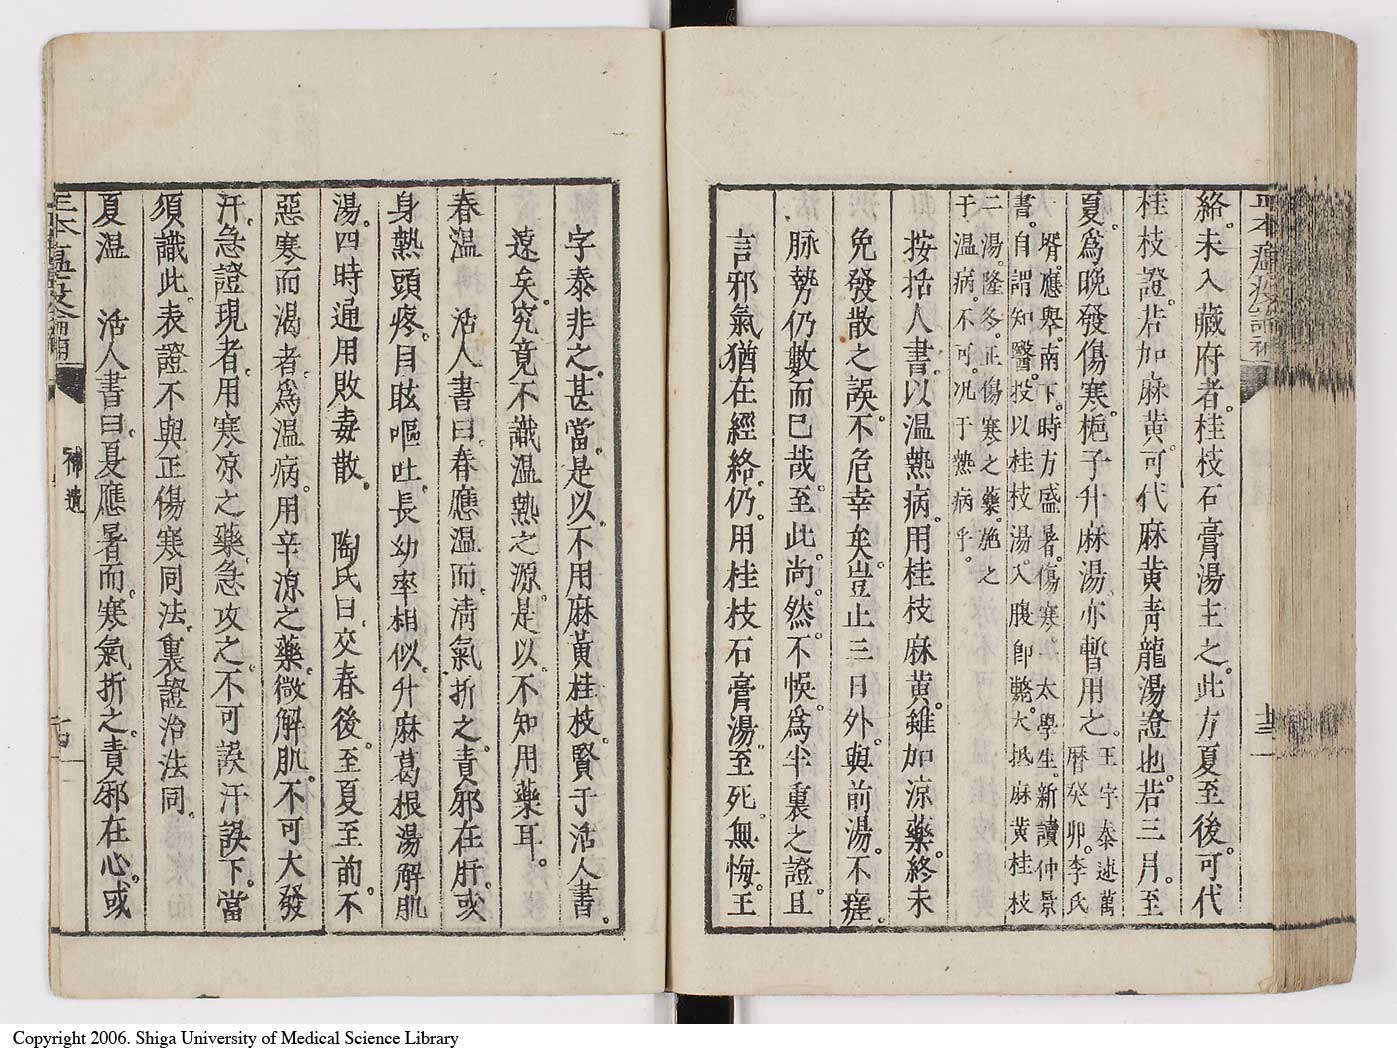 絡。未入藏府者。桂枝石膏湯主之。此方夏至後。可代
桂枝證。若加麻黄。可代麻黄青龍湯證也。若三月。至
夏。爲晩發傷寒。梔子升麻湯。亦暫用之。
王宇泰述萬
暦癸卯。李氏
壻。應舉。南下。時方盛暑。傷寒。太學生。新讀仲景
書。自謂知醫。投以桂枝湯。入腹即斃。大抵麻黄桂枝
二湯。隆冬。正傷寒之藥。施之
于温病。不可。况于熱病乎。
按。括人書。以温熱病。用桂枝麻黄。雖加凉藥。終未
免發散之誤。不危幸矣。豈止三日外。與前湯。不瘥。
脉勢仍數而已哉。至此。尚。然。不悞。爲半裏之證。且
言邪氣猶在經絡。仍。用桂枝石膏湯。至死。無悔。王
字泰非之。甚當。是以。不用麻黄桂枝。賢于活人書。
遠矣。究竟不識温熱之源。是以。不知用藥耳。
春温 活人書曰。春應温而。淸氣折之。責邪在肝。或
身熱頭疼。目眩嘔吐。長幼率相似。升麻葛根湯解肌
湯。四時通用敗毒散。 陶氏曰。交春後。至夏至前。不
惡寒而渴者。爲温病。用辛凉之藥。微解肌。不可大發
汗。急證現者。用寒凉之藥。急攻之。不可誤汗誤下。當
須識此。表證不與正傷寒同法。裏證治法同。
夏温 活人書曰。夏應暑而。寒氣折之。責邪在心。或
補遺
十四
Copyright 2006. Shiga University of Medical Science Library